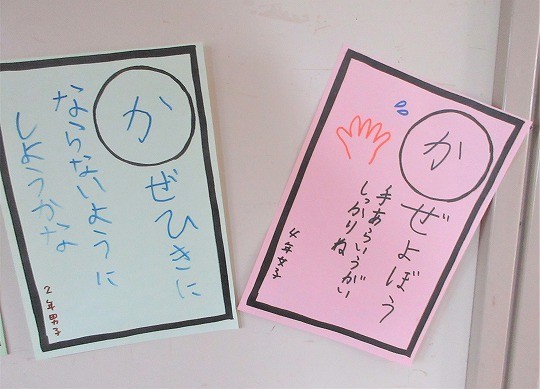 かぜひきに
ならないように
しようかな
2年男子
かぜよぼう
手あらいうがい
しっかりね
4年女子